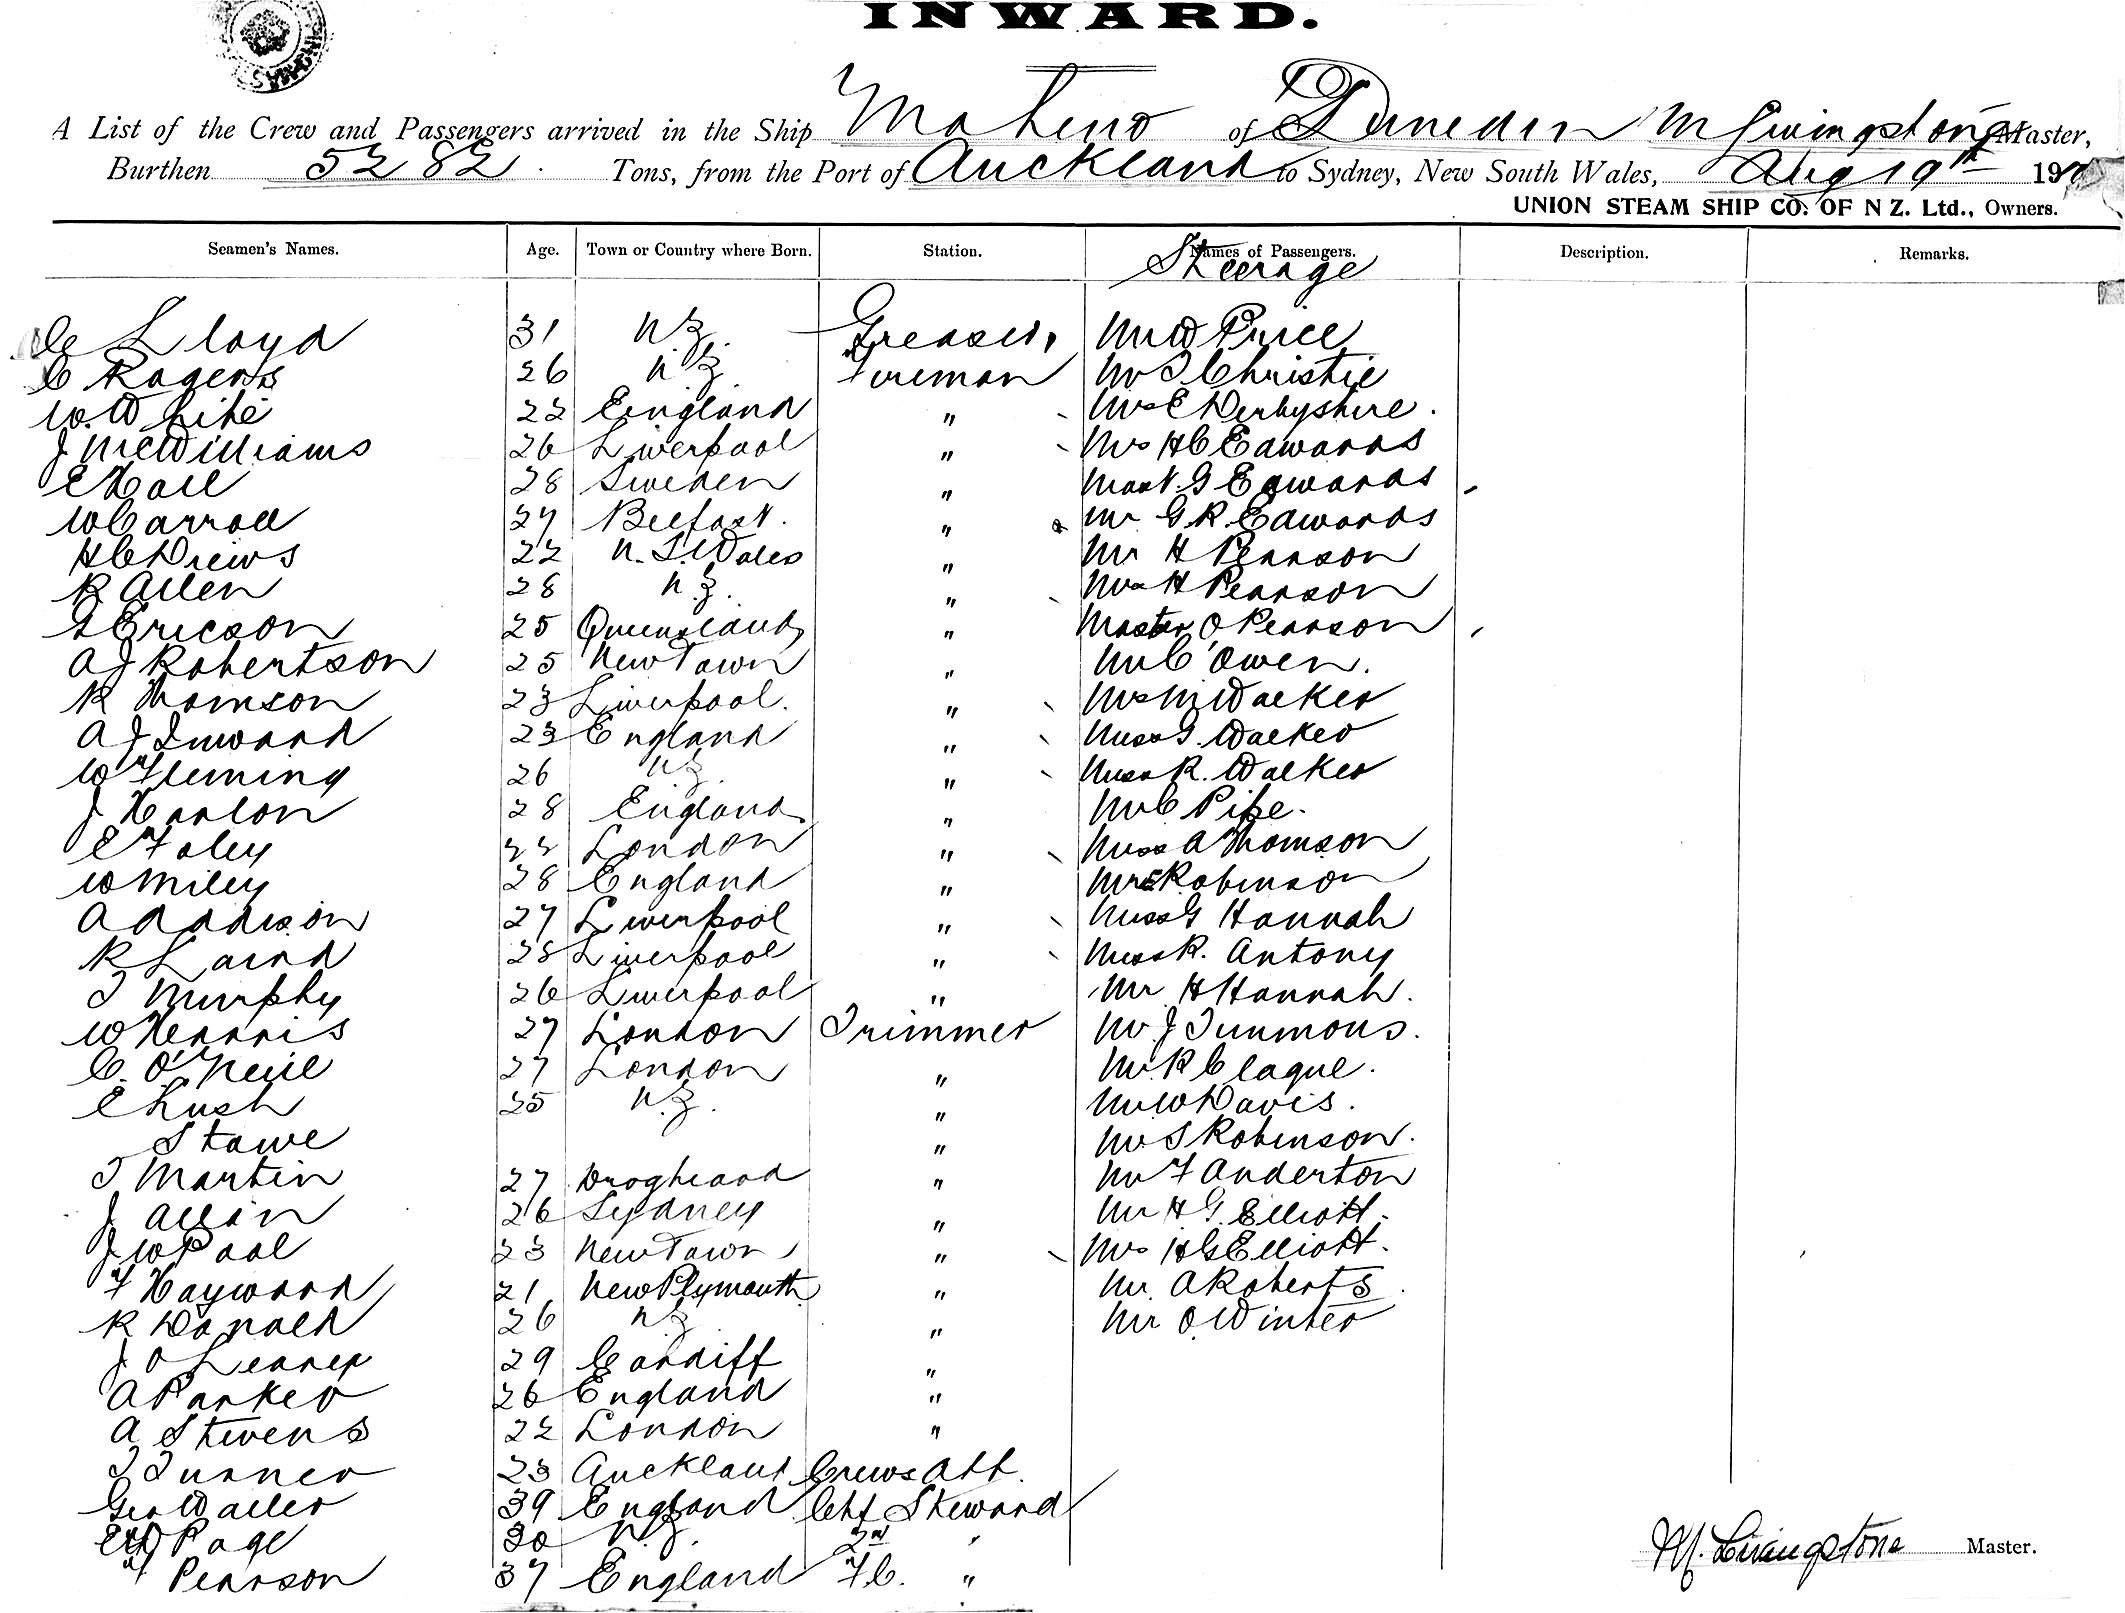 INWARD.
A List of the Crew and Passengers arrived in the Ship Maheno of Dunedin M Livingstone Master,
Burthen 5282 Tons, from the Port of Auckland to Sydney, New South Wales, Aug 19th 19
UNION STEAM SHIP CO. OF N Z. Ltd., Owners.
Seamen's Names. Age. Town or Country where Born. Station. Names of Passengers. Description. Remarks.
Steerage
C Lloyd 31 N.Z. Greaser, Mr W Price
C Rogers 26 N.Z. Fireman Mr J Christie
W. White 22 England " Mrs E Derbyshire.
J McWilliams 26 Liverpool " Mrs H C Edwards
E Hall 28 Sweden " Mast. G Edwards
W Carroll 27 Belfast. " Mr G R Edwards
H C Drews 22 N. S. Wales " Mr H Pearson
R Allen 28 N.Z. " Mrs H Pearson
S Ericson 25 Queensland " Master O Pearson
A J Robertson 25 New Town " Mr C Owen.
R Thomson 23 Liverpool. " Mrs M Walker
A J Inward 23 England " Miss G. Walker
W Fleming 26 N.Z. " Miss R. Walker
J Hanlon 28 England " Mr C Pipe.
E Foley 22 London " Miss A Thomson
W Miley 28 England " Mr E Robinson
A Addison 27 Liverpool " Miss G Hannah
R Laird 28 Liverpool " Miss R. Antony
T Murphy 26 Liverpool " Mr H Hannah.
W Harris 27 London Trimmer Mr J Timmons.
C. O'Neill 27 London " Mr R Clague.
E Lush 25 N.Z. " Mr W Davis.
Stowe " Mr S Robinson.
T Martin 27 Drogheada " Mr F Anderton
J Allan 26 Sydney " Mr H G Elliott.
J W Pool 23 New Town " Mrs H G Elliott.
F Hayward 21 New Plymouth " Mr. A Roberts
R Donald 26 N.Z. " Mr O. Winter
J O Leary 29 Cardiff "
A Parker 26 England "
A Stevens 22 London "
T Turner 23 Auckland Crews Att.
Geo Waller 39 England Chf Steward
Page 30 N.Z. 2nd "
Pearson 37 England F.C. "
M. Livingstone Master.